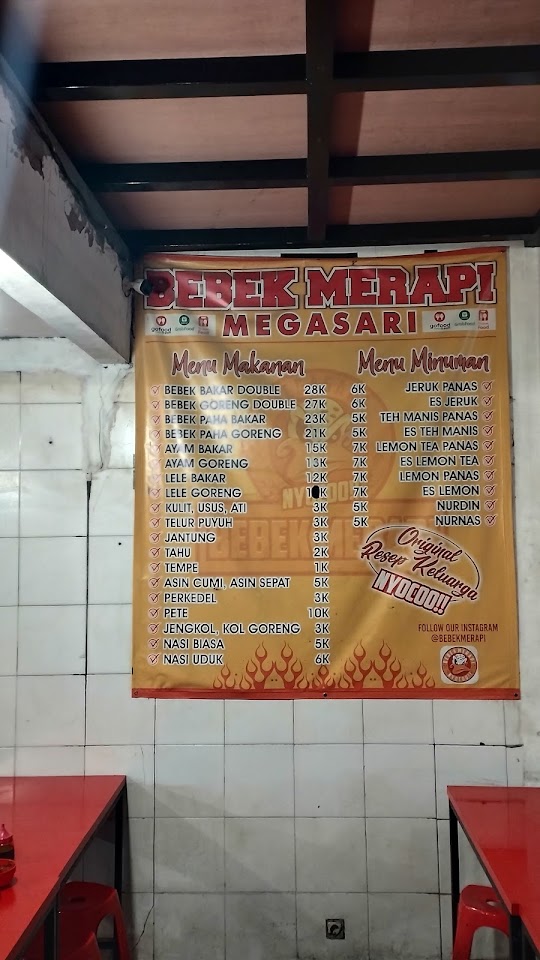 BEBEK MERAPI
MEGASARI
gofood GrabFood
gofood GrabFood
Menu Makanan
BEBEK BAKAR DOUBLE 28K
BEBEK GORENG DOUBLE 27K
BEBEK PAHA BAKAR 23K
BEBEK PAHA GORENG 21K
AYAM BAKAR 15K
AYAM GORENG 13K
LELE BAKAR 12K
LELE GORENG
KULIT, USUS, ATI 3K
TELUR PUYUH 3K
JANTUNG 3K
TAHU 2K
TEMPE 1K
ASIN CUMI, ASIN SEPAT 5K
PERKEDEL 3K
PETE 10K
JENGKOL, KOL GORENG 3K
NASI BIASA 5K
NASI UDUK 6K
Menu Minuman
6K JERUK PANAS
6K ES JERUK
5K TEH MANIS PANAS
5K ES TEH MANIS
7K LEMON TEA PANAS
7K ES LEMON TEA
7K LEMON PANAS
7K ES LEMON
5K NURDIN
5K NURNAS
Original
Resep Keluarga
NYOCOO!!
FOLLOW OUR INSTAGRAM
@BEBEKMERAPI